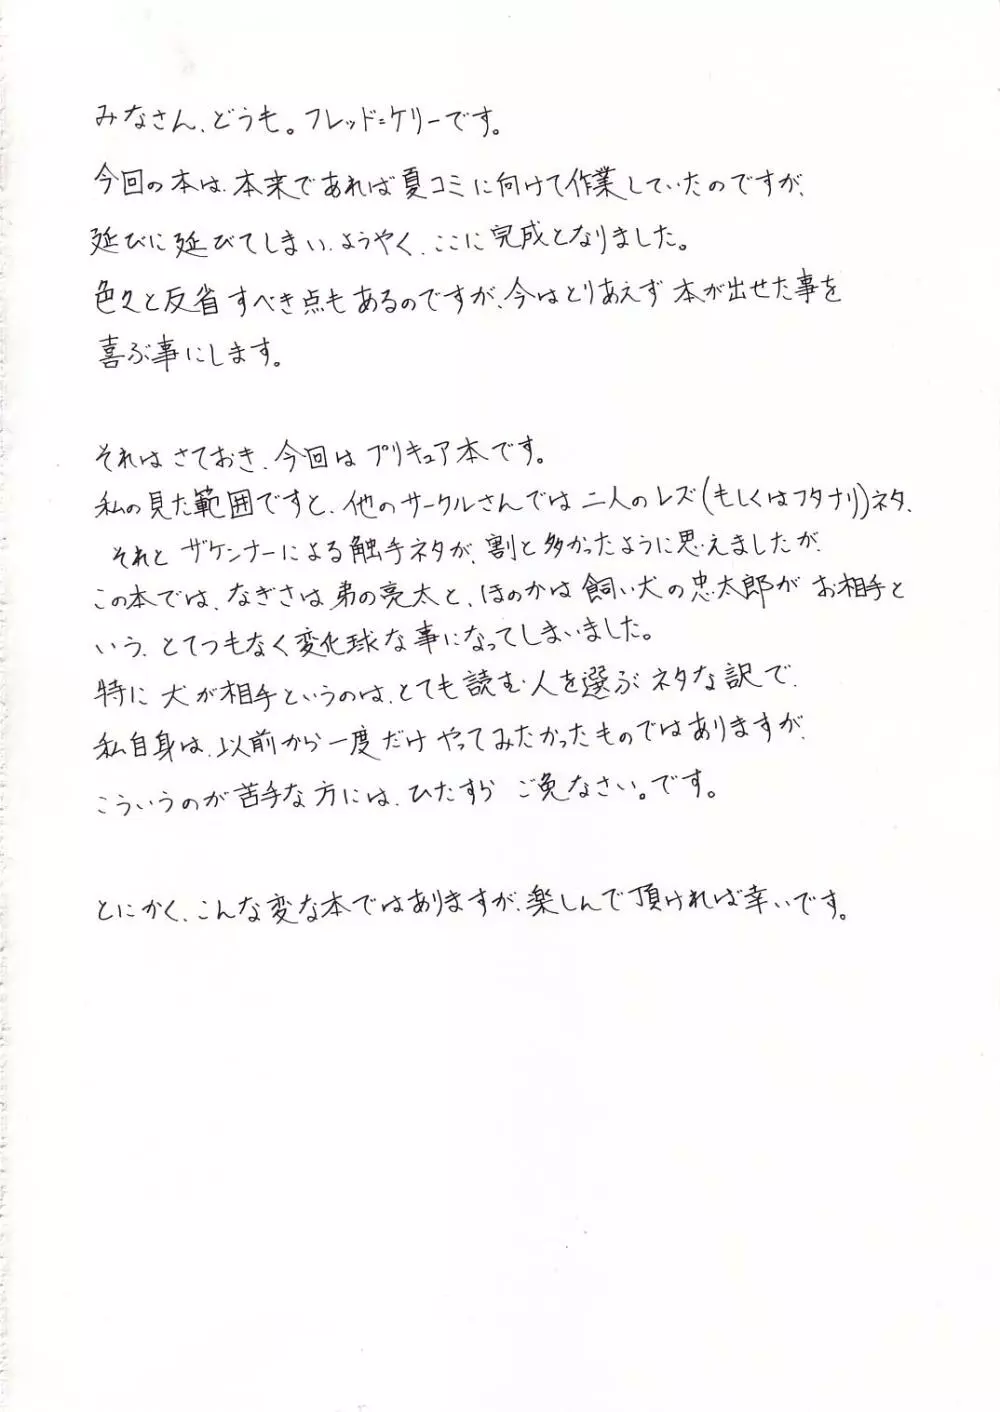 みなさん、どうも。フレッド=ケリーです。
今回の本は、本来であれば夏コミに向けて作業していたのですが、
延びに延びてしまい、ようやく、ここに完成となりました。
色々と反省すべき点もあるのですが、今はとりあえず本が出せた事を
喜ぶ事にします。
それはさておき、今回はプリキュア本です。
私の見た範囲ですと、他のサークルさんでは二人のレズ(もしくはフタナリ)ネタ、
それとザケンナーによる触手ネタが、割と多かったように思えましたが、
この本では、なぎさは弟の亮太と、ほのかは飼い犬の忠太郎がお相手と
いう、とてつもなく変化球な事になってしまいました。
特に犬が相手というのは、とても読む人を選ぶネタな訳で、
私自身は、以前から一度だけやってみたかったものではありますが、
こういうのが苦手な方には、ひたすらご免なさい。です。
とにかく、こんな変な本ではありますが、楽しんで頂ければ幸いです。